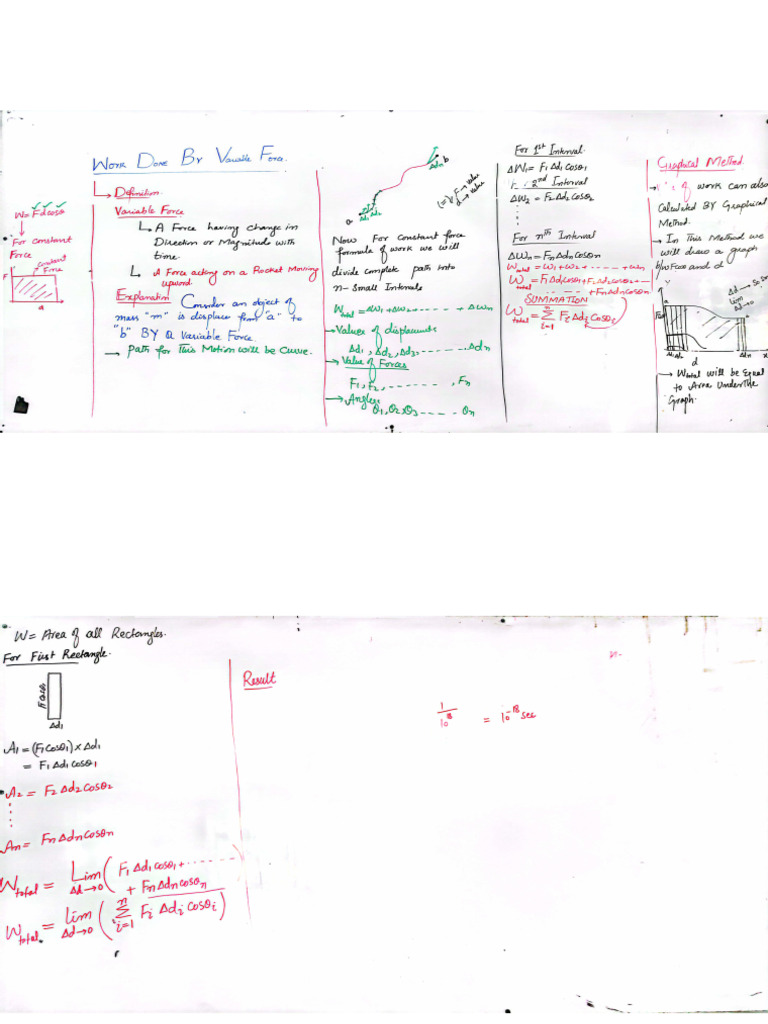 Work Done By Variable Force.
W = Fdcosθ
For constant
Force
Constant
Force
F
d
Definition.
Variable Force
A Force having change in
Direction or Magnitude with
time.
A Force acting on a Rocket Moving
upword.
Explanation Consider an object of
mass "m" is displace from "a" to
"b" BY a Variable Force.
→ Path for This Motion will be Curve.
b
Δdn
a
Δd1 Δd2
F → value
d → value
Now For constant force
formula of work we will
divide complete path into
n- Small Intervals
Wtotal = ΔW1 + ΔW2 + ------ + ΔWn
→ Values of displaments
Δd1, Δd2, Δd3, ------- Δdn
→ Value of Forces
F1, F2, ------, Fn
→ Angles
θ1, θ2, θ3 ------ θn
For 1st Interval.
ΔW1 = F1 Δd1 cosθ1
2nd Interval
ΔW2 = F2 Δd2 cosθ2
For nth Interval
ΔWn = Fn Δdn cosθn
Wtotal = W1 + W2 + ------ + Wn
Wtotal = F1 Δd1 cosθ1 + F2 Δd2 cosθ2 + ---
------ + Fn Δdn cosθn
SUMMATION
Wtotal = Σ i=1 n Fi Δdi Cosθi
Graphical Method.
of work can also
Calculated BY Graphical
Method.
→ In This Method we
will draw a graph
b/w Fcosθ and d
Y
Δd →
lim
Δd→0
Δd1 Δd2
d
Δdn
x
→ Wtotal will be Equal
to Area Under The
Graph.
W = Area of all Rectangles.
For First Rectangle.
F cosθ
Δd1
A1 = (F1 cosθ1) × Δd1
= F1 Δd1 cosθ1
A2 = F2 Δd2 cosθ2
An = Fn Δdn cosθn
Wtotal = Lim Δd→0 (F1 Δd1 cosθ1 + ------
+ Fn Δdn cosθn
Wtotal = lim Δd→0 (Σ i=1 n Fi Δdi cosθi)
Result
1/10^18 = 10^-18 sec
n-